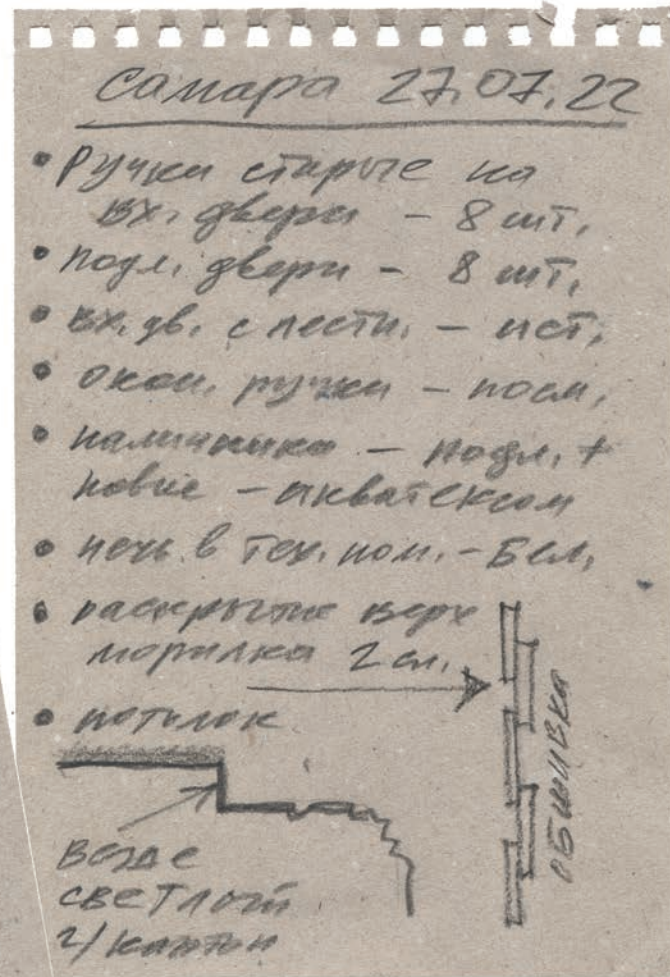 Самара 27.07.22
• Ручки старые на
вх. двери – 8 шт.
• подл. двери – 8 шт.
• вх. дв. с лестн. – ист.
• окон. ручки – посм.
• наличники – подл. +
новые – акватексом
• печь в тех. пом. – бел.
• раскрытие верх
морилка 2 сл.
• потолок
ОБШИВКА
везде
светлый
г/картон